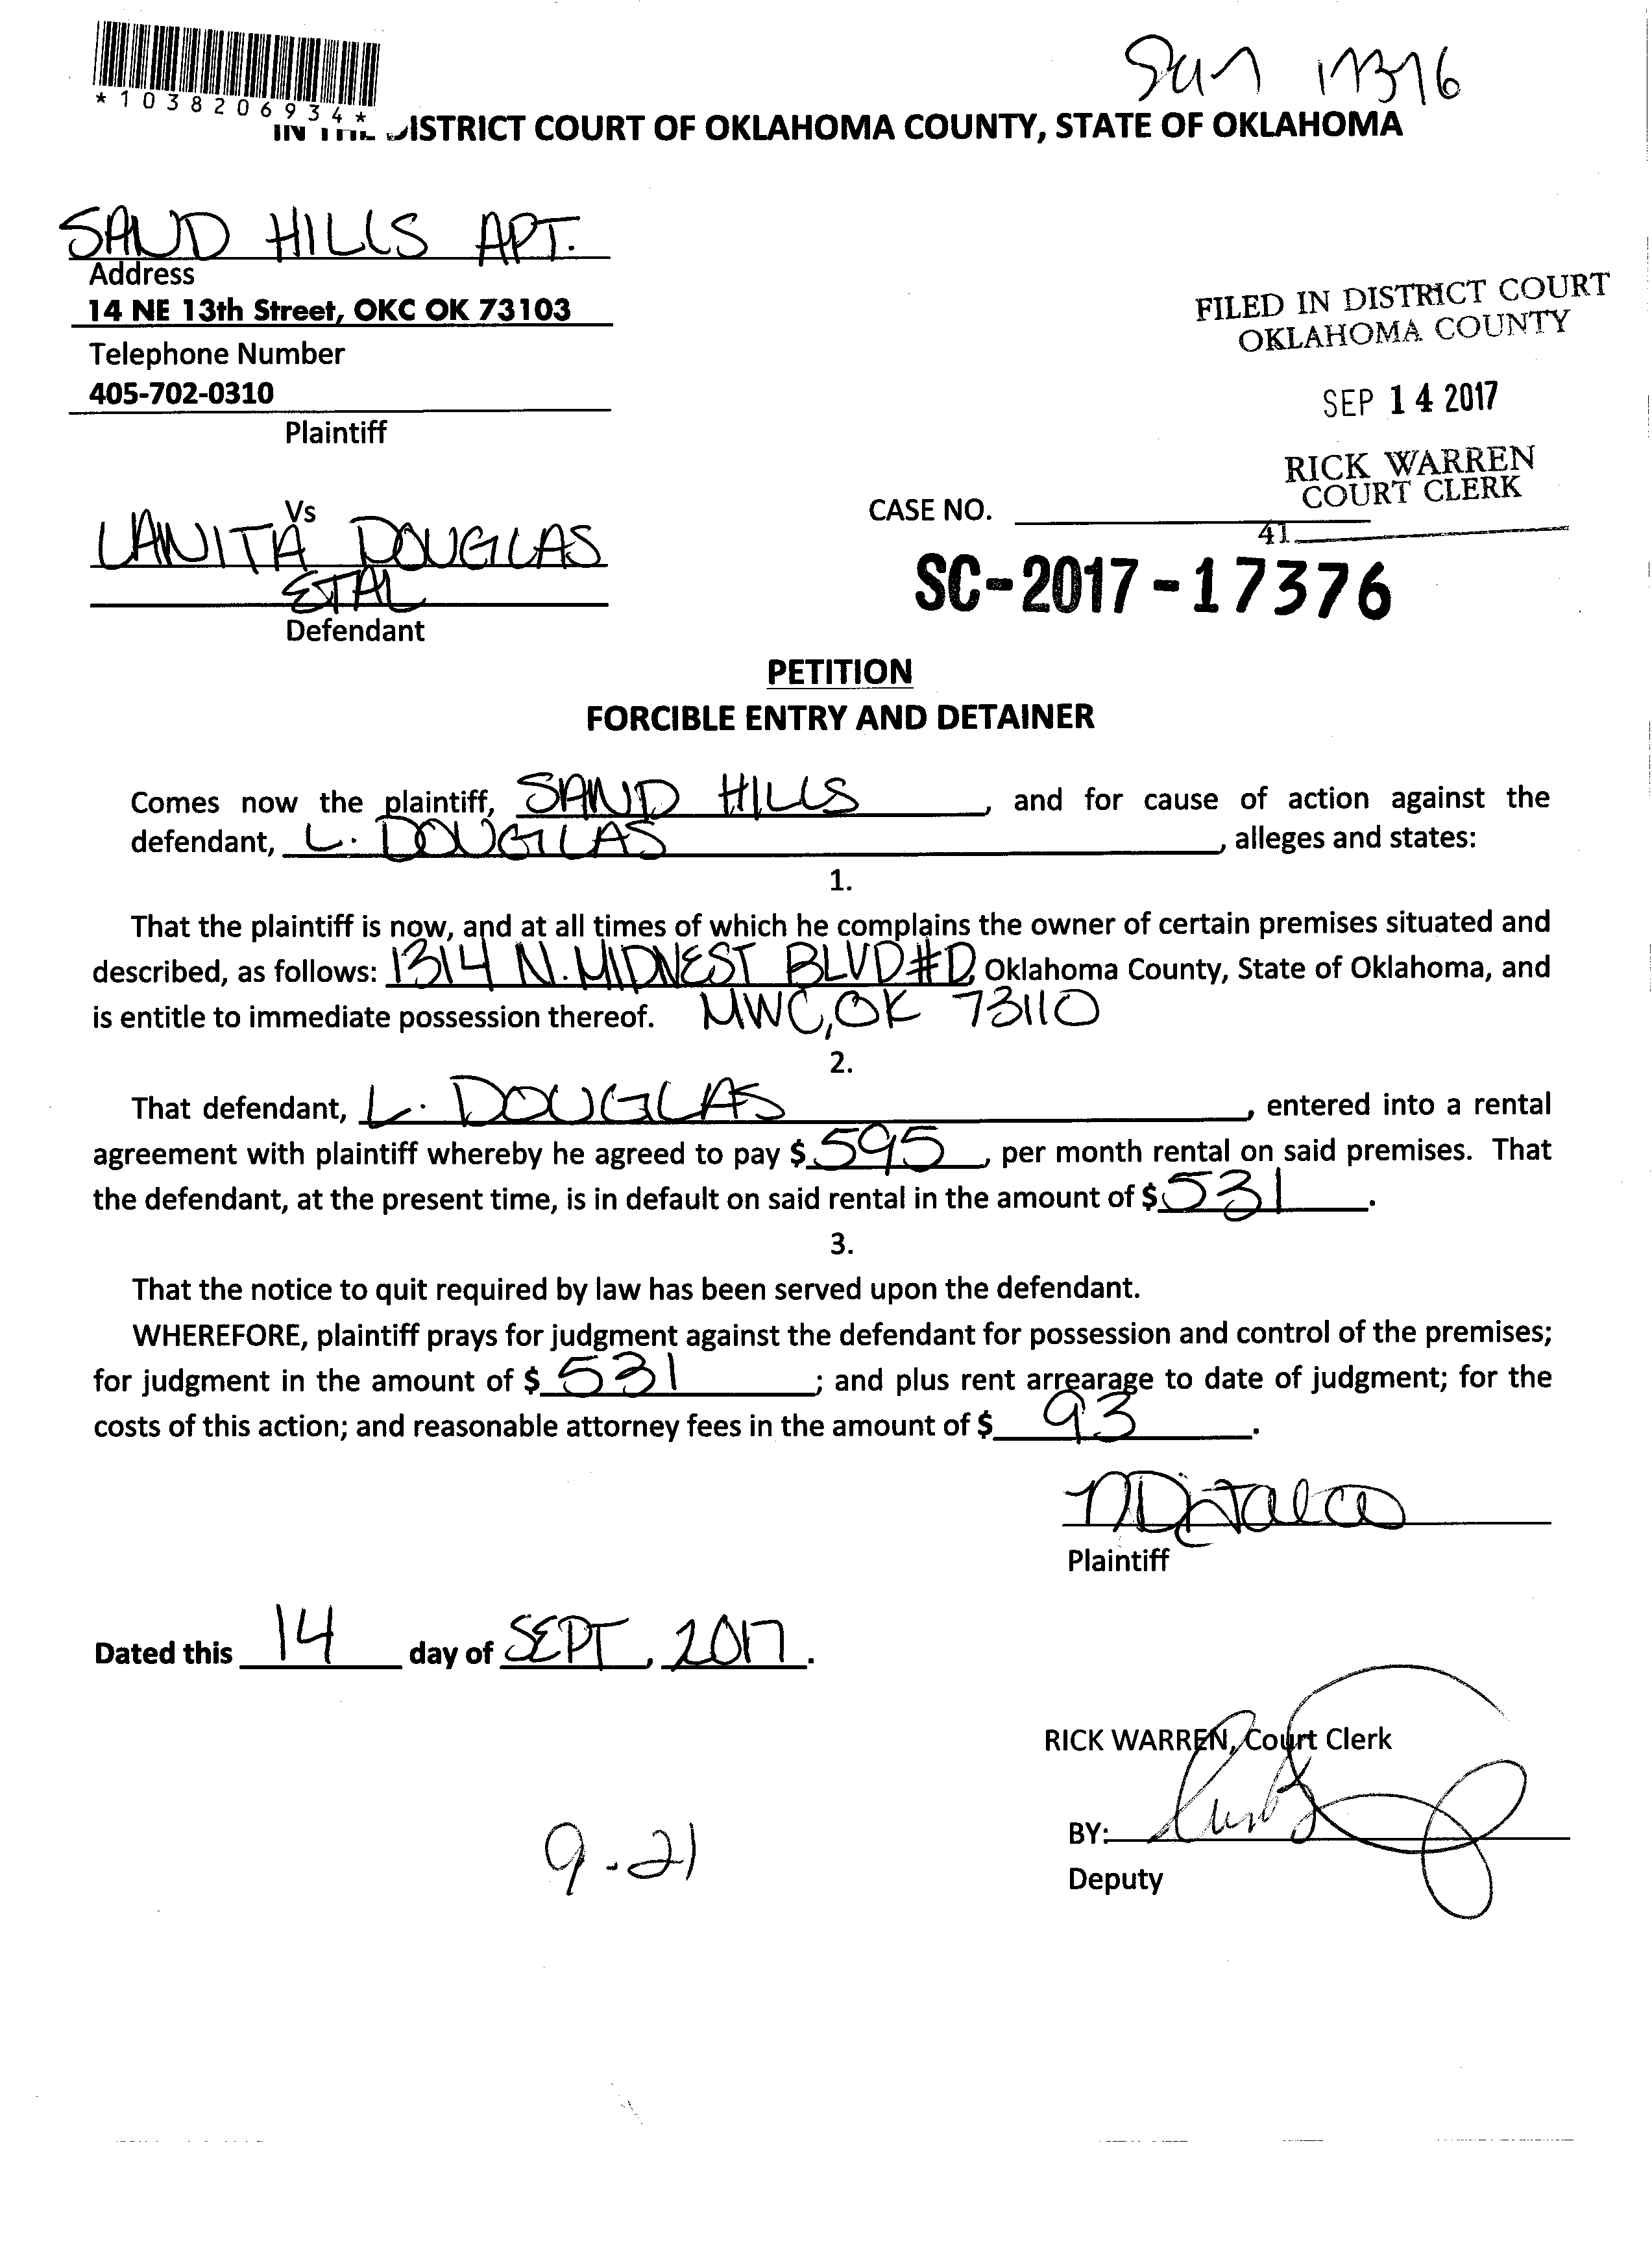 *1038206934*
17376
IN THE DISTRICT COURT OF OKLAHOMA COUNTY, STATE OF OKLAHOMA
SAND HILLS APT.
Address
14 NE 13th Street, OKC OK 73103
Telephone Number
405-702-0310
Plaintiff
FILED IN DISTRICT COURT
OKLAHOMA COUNTY
SEP 14 2017
RICK WARREN
COURT CLERK
41
Vs
LANITA DOUGLAS
ETAL
Defendant
CASE NO.
SC-2017-17376
PETITION
FORCIBLE ENTRY AND DETAINER
Comes now the plaintiff, SAND HILLS, and for cause of action against the
defendant, L. DOUGLAS, alleges and states:
1.
That the plaintiff is now, and at all times of which he complains the owner of certain premises situated and
described, as follows: 1314 N. MIDWEST BLVD #D, Oklahoma County, State of Oklahoma, and
is entitle to immediate possession thereof. MWC, OK 73110
2.
That defendant, L. DOUGLAS, entered into a rental
agreement with plaintiff whereby he agreed to pay $ 595, per month rental on said premises. That
the defendant, at the present time, is in default on said rental in the amount of $ 531.
3.
That the notice to quit required by law has been served upon the defendant.
WHEREFORE, plaintiff prays for judgment against the defendant for possession and control of the premises;
for judgment in the amount of $ 531; and plus rent arrearage to date of judgment; for the
costs of this action; and reasonable attorney fees in the amount of $ 93.
Plaintiff
Dated this 14 day of SEPT, 2017.
RICK WARREN, Court Clerk
BY:
Deputy
9-21